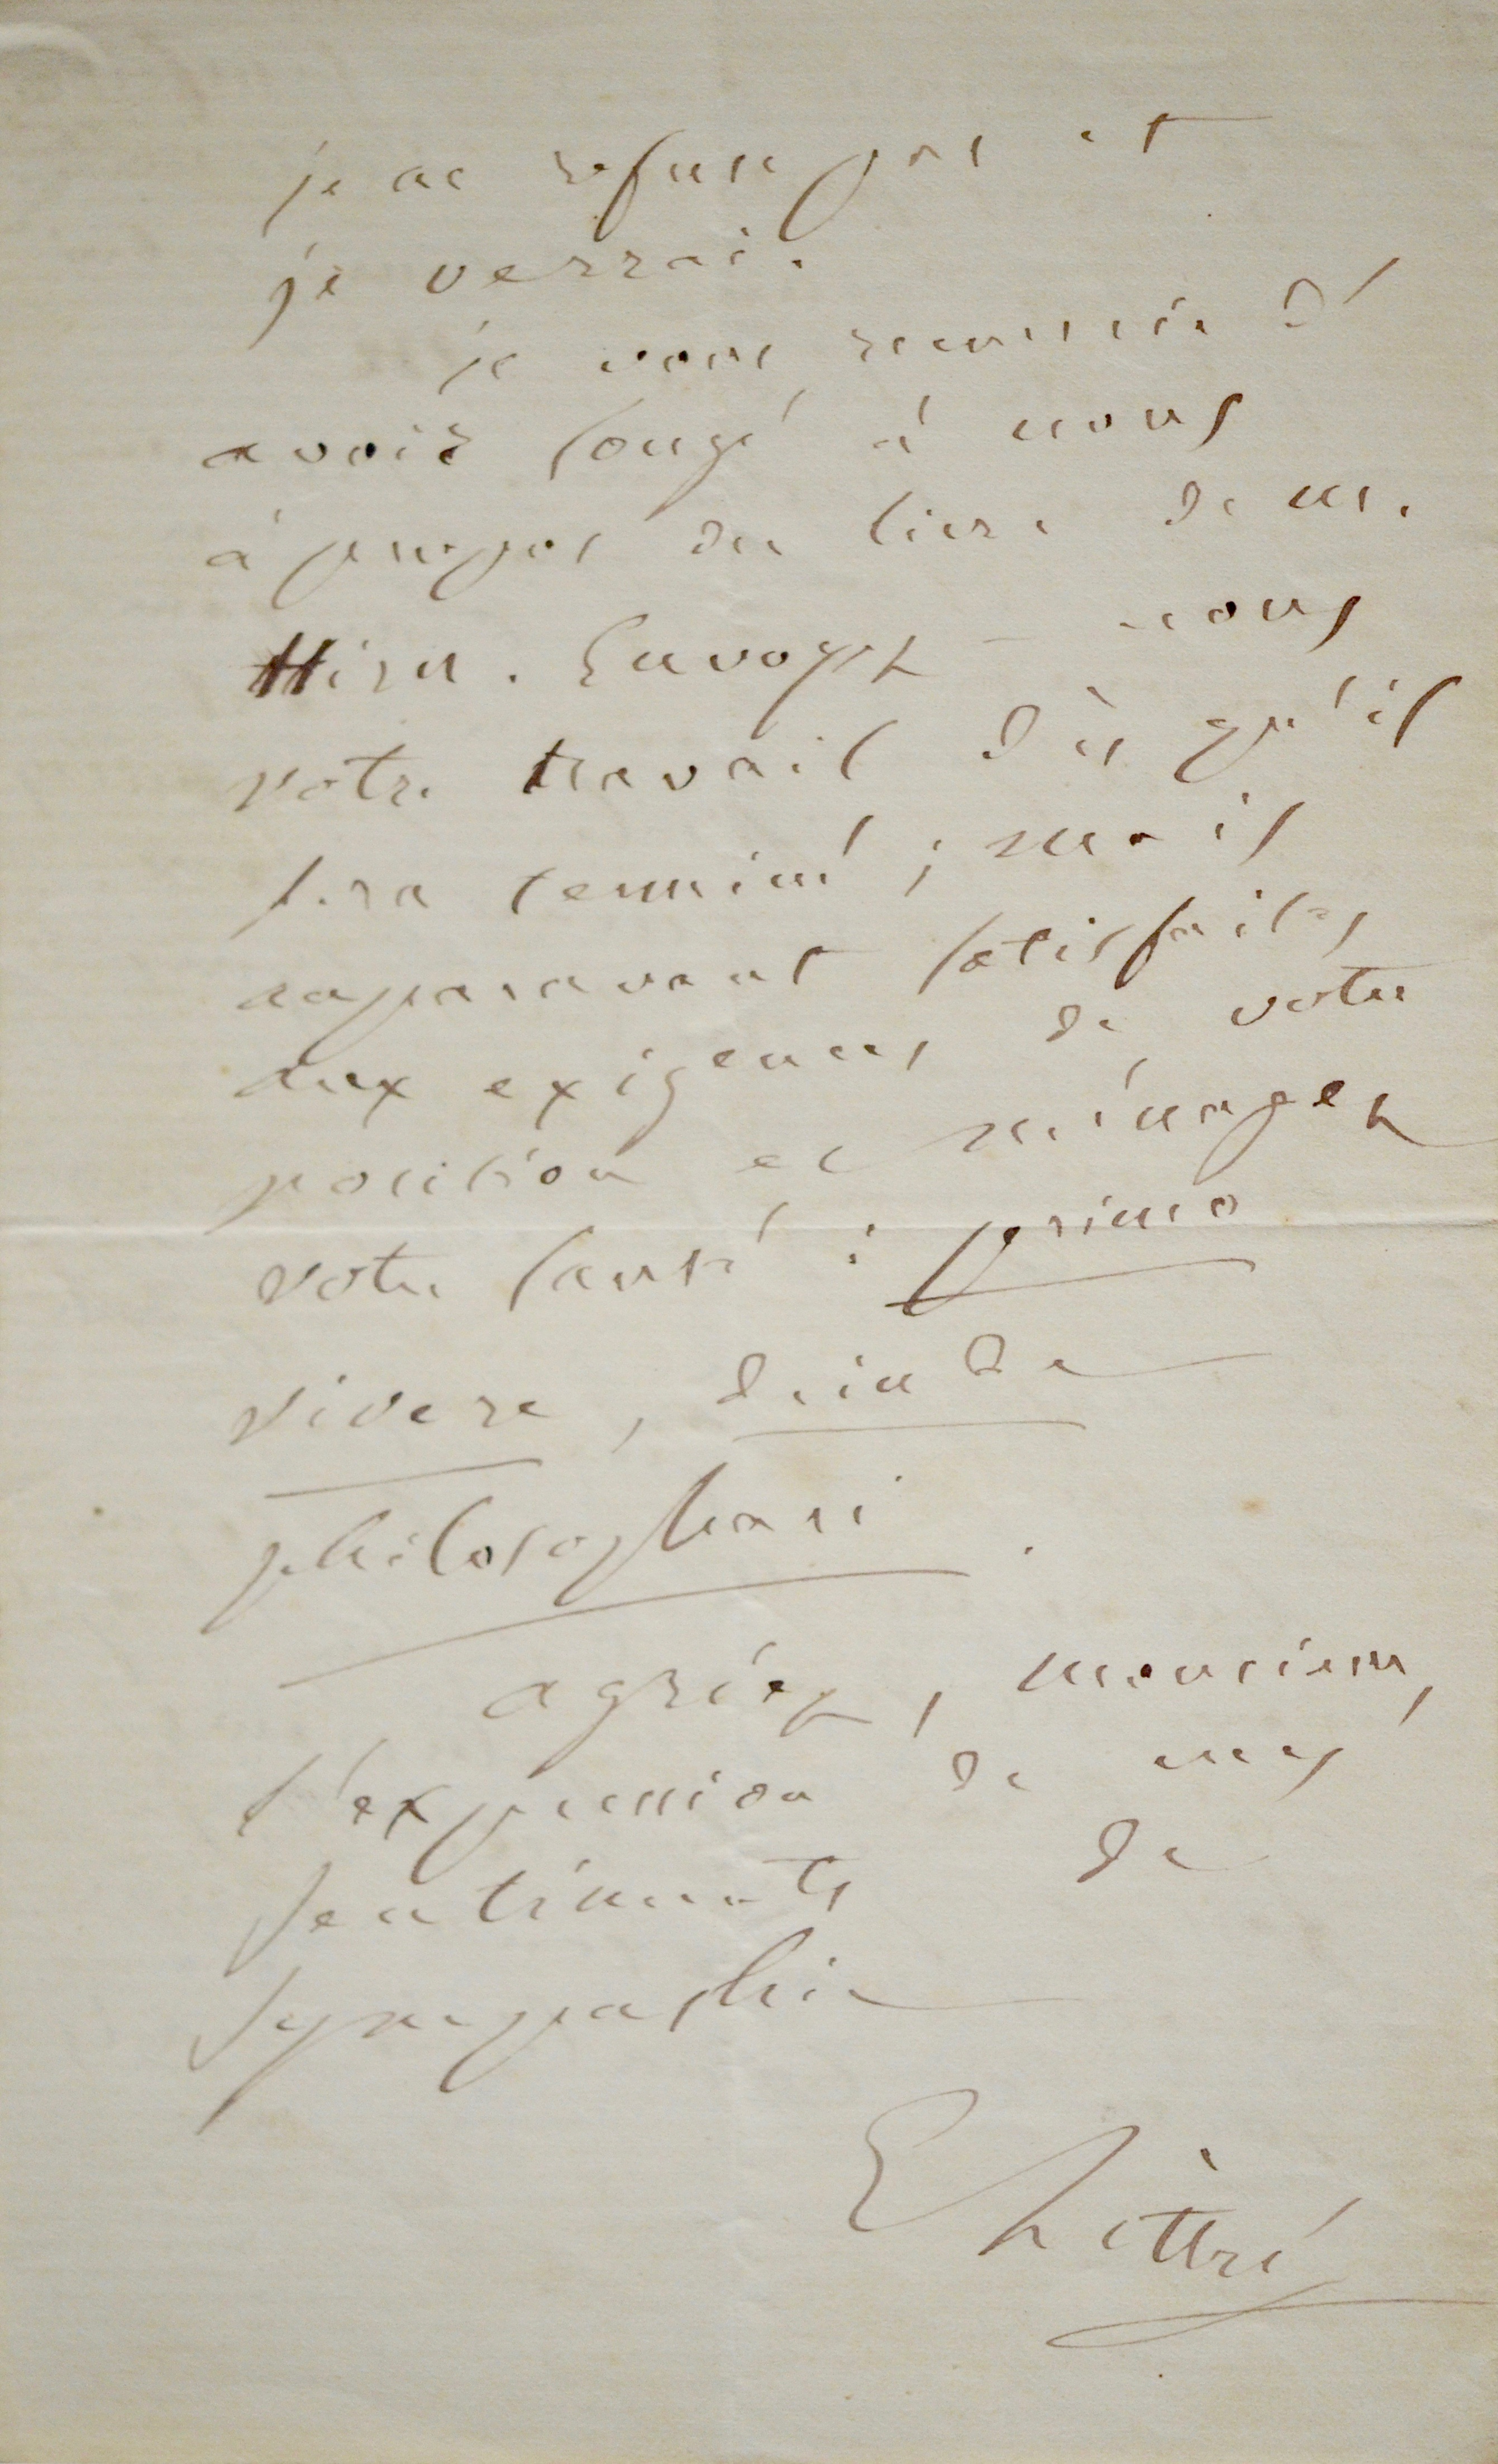 je ne refuse pas et
je verrai.
je vous remercie d'
avoir songé à nous
à propos du livre de M.
Hirn. Envoyez - nous
votre travail dès qu'il
sera terminé ; mais
auparavant satisfaites
aux exigences de votre
position et ménagez
votre santé : primo
vivere, deinde
philosophari.
agréez, monsieur,
l'expression de mes
sentiments de
sympathie
E Littré